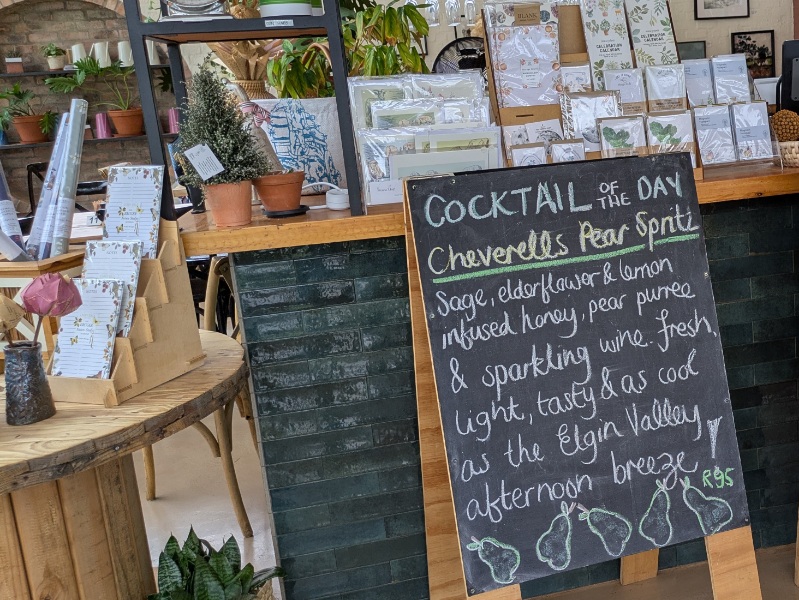 COCKTAIL OF THE DAY
Cheverells Pear Spritz
Sage, elderflower & lemon
infused honey, pear purree
& sparkling wine. fresh,
light, tasty & as cool
as the Elgin Valley
afternoon breeze!
R95